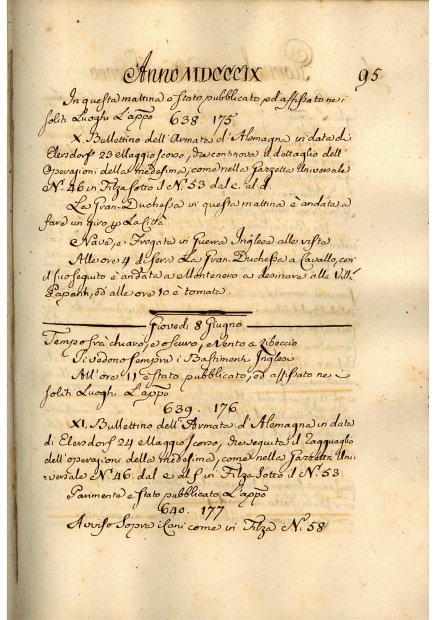 Anno MDCCCIX 95
In questa mattina è stato pubblicato, ed affissato nei
soliti Luoghi L'appo
638 175
X. Bullettino dell'Armata d'Alemagna in data di
Ebersdorf 23 Maggio scorso, che contiene il dettaglio dell'
Operazioni della medesima, come nella Gazzetta Universale
N.º 46 in Filza sotto il N.º 53 dal c. al d.
La Gran-Duchessa in questa mattina è andata a
fare un giro p La Città
4 Nave, e Fregata in Guerra Inglese alle viste
Alle ore 4 di sera La Gran-Duchessa a Cavallo, con
il suo seguito è andata a Montenero a desinare alla Villa
ed alle ore 10 è tornata
Giovedi 8 Giugno
Tempo frà chiaro, e oscuro, e Vento a Libeccio
Si vedono sempre i Bastimenti Inglesi
All'ore 11 è stato pubblicato, ed affissato nei
soliti Luoghi L'appo
639. 176
XI. Bullettino dell'Armata d'Alemagna in data
di Ebersdorf 24 Maggio scorso, che seguita il ragguaglio
dell'operazioni della medesima, come nella Gazzetta Uni=
versale N.º 46 dal e al f in Filza sotto il N.º 53
Parimente è stato pubblicato L'appo
640. 177
Avviso sopra i Cani come in Filza N.º 58